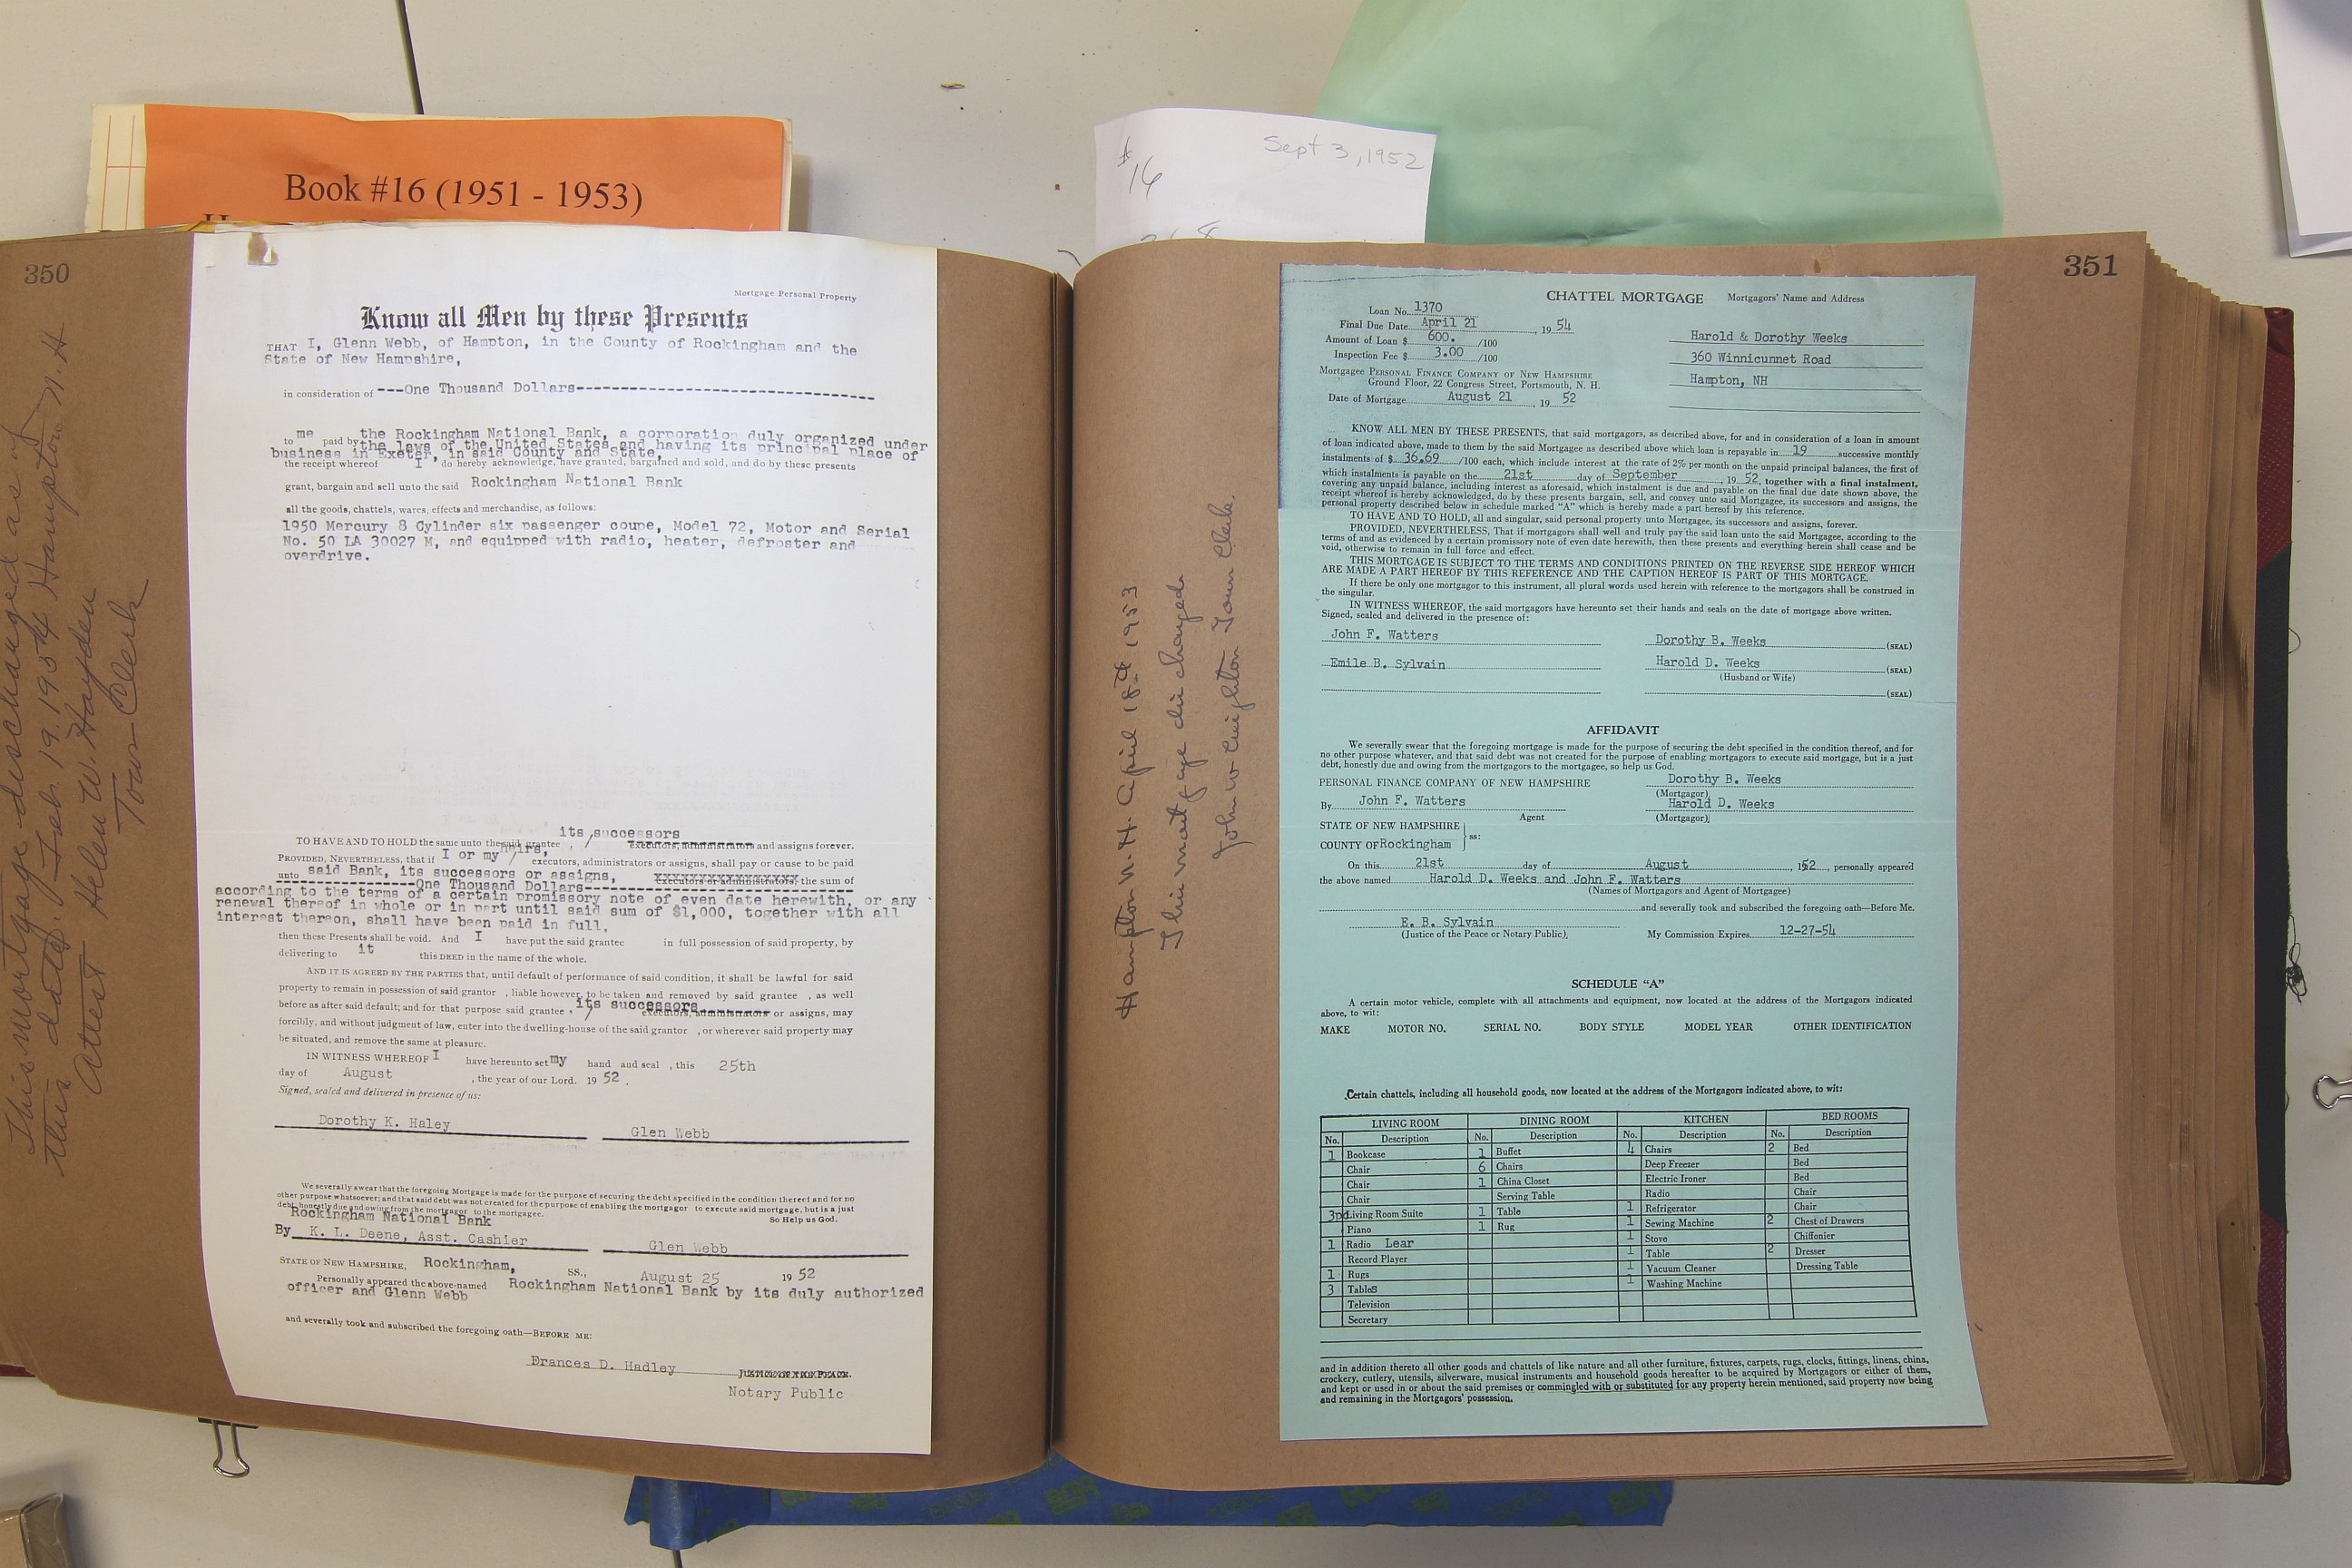 Book #16 (1951 - 1953)
# 16
Sept 3, 1952
350
This mortgage discharged as of
this date. Feb. 19. 1954 Hampton N. H
Attest Helen W. Hayden
Town Clerk
Mortgage Personal Property
Know all Men by these Presents
THAT I, Glenn Webb, of Hampton, in the County of Rockingham and the
State of New Hampshire,
in consideration of ---One Thousand Dollars---
to me paid by the Rockingham National Bank, a corporation duly organized under
the laws of the United States and having its principal place of
business in Exeter, in said County and State,
the receipt whereof I do hereby acknowledge, have granted, bargained and sold, and do by these presents
grant, bargain and sell unto the said Rockingham National Bank
all the goods, chattels, wares, effects and merchandise, as follows:
1950 Mercury 8 Cylinder six passenger coupe, Model 72, Motor and Serial
No. 50 LA 30027 M, and equipped with radio, heater, defroster and
overdrive.
its successors
TO HAVE AND TO HOLD the same unto the said grantee , / executors, administrators and assigns forever.
PROVIDED, NEVERTHELESS, that if I or my / heirs, executors, administrators or assigns, shall pay or cause to be paid
unto said Bank, its successors or assigns, executors or administrators, the sum of
---One Thousand Dollars---
according to the terms of a certain promissory note of even date herewith, or any
renewal thereof in whole or in part until said sum of $1,000, together with all
interest thereon, shall have been paid in full,
then these Presents shall be void. And I have put the said grantee in full possession of said property, by
delivering to it this DEED in the name of the whole.
AND IT IS AGREED BY THE PARTIES that, until default of performance of said condition, it shall be lawful for said
property to remain in possession of said grantor , liable however, to be taken and removed by said grantee , as well
before as after said default; and for that purpose said grantee , / its successors executors, administrators or assigns, may
forcibly, and without judgment of law, enter into the dwelling-house of the said grantor , or wherever said property may
be situated, and remove the same at pleasure.
IN WITNESS WHEREOF I have hereunto set my hand and seal , this 25th
day of August , the year of our Lord. 19 52 .
Signed, sealed and delivered in presence of us:
Dorothy K. Haley Glen Webb
We severally swear that the foregoing Mortgage is made for the purpose of securing the debt specified in the condition thereof and for no
other purpose whatsoever; and that said debt was not created for the purpose of enabling the mortgagor to execute said mortgage, but is a just
debt, honestly due and owing from the mortgagor to the mortgagee.
So Help us God.
Rockingham National Bank
By K. L. Deene, Asst. Cashier Glen Webb
STATE OF NEW HAMPSHIRE, Rockingham, SS., August 25 19 52
Personally appeared the above-named Rockingham National Bank by its duly authorized
officer and Glenn Webb
and severally took and subscribed the foregoing oath—BEFORE ME:
Frances D. Hadley JUSTICE OF THE PEACE.
Notary Public
351
Hampton N. H. April 18th 1953
This mortgage discharged
John W Creighton Town Clerk.
CHATTEL MORTGAGE Mortgagors' Name and Address
Loan No. 1370
Final Due Date April 21 , 19 54
Amount of Loan $ 600. /100
Inspection Fee $ 3.00 /100
Mortgagee PERSONAL FINANCE COMPANY OF NEW HAMPSHIRE
Ground Floor, 22 Congress Street, Portsmouth, N. H.
Date of Mortgage August 21 , 19 52
Harold & Dorothy Weeks
360 Winnicunnet Road
Hampton, NH
KNOW ALL MEN BY THESE PRESENTS, that said mortgagors, as described above, for and in consideration of a loan in amount
of loan indicated above, made to them by the said Mortgagee as described above which loan is repayable in 19 successive monthly
instalments of $ 36.69 /100 each, which include interest at the rate of 2% per month on the unpaid principal balances, the first of
which instalments is payable on the 21st day of September , 19 52, together with a final instalment,
covering any unpaid balance, including interest as aforesaid, which instalment is due and payable on the final due date shown above, the
receipt whereof is hereby acknowledged, do by these presents bargain, sell, and convey unto said Mortgagee, its successors and assigns, the
personal property described below in schedule marked "A" which is hereby made a part hereof by this reference.
TO HAVE AND TO HOLD, all and singular, said personal property unto Mortgagee, its successors and assigns, forever.
PROVIDED, NEVERTHELESS, That if mortgagors shall well and truly pay the said loan unto the said Mortgagee, according to the
terms of and as evidenced by a certain promissory note of even date herewith, then these presents and everything herein shall cease and be
void, otherwise to remain in full force and effect.
THIS MORTGAGE IS SUBJECT TO THE TERMS AND CONDITIONS PRINTED ON THE REVERSE SIDE HEREOF WHICH
ARE MADE A PART HEREOF BY THIS REFERENCE AND THE CAPTION HEREOF IS PART OF THIS MORTGAGE.
If there be only one mortgagor to this instrument, all plural words used herein with reference to the mortgagors shall be construed in
the singular.
IN WITNESS WHEREOF, the said mortgagors have hereunto set their hands and seals on the date of mortgage above written.
Signed, sealed and delivered in the presence of:
John F. Watters Dorothy B. Weeks (SEAL)
Emile B. Sylvain Harold D. Weeks (SEAL)
(Husband or Wife)
(SEAL)
AFFIDAVIT
We severally swear that the foregoing mortgage is made for the purpose of securing the debt specified in the condition thereof, and for
no other purpose whatever, and that said debt was not created for the purpose of enabling mortgagors to execute said mortgage, but is a just
debt, honestly due and owing from the mortgagors to the mortgagee, so help us God.
PERSONAL FINANCE COMPANY OF NEW HAMPSHIRE Dorothy B. Weeks
(Mortgagor)
By John F. Watters Harold D. Weeks
Agent (Mortgagor)
STATE OF NEW HAMPSHIRE
ss:
COUNTY OF Rockingham
On this 21st day of August , 1952, personally appeared
the above named Harold D. Weeks and John F. Watters
(Names of Mortgagors and Agent of Mortgagee)
and severally took and subscribed the foregoing oath—Before Me.
E. B. Sylvain
(Justice of the Peace or Notary Public), My Commission Expires 12-27-54
SCHEDULE "A"
A certain motor vehicle, complete with all attachments and equipment, now located at the address of the Mortgagors indicated
above, to wit:
MAKE MOTOR NO. SERIAL NO. BODY STYLE MODEL YEAR OTHER IDENTIFICATION
Certain chattels, including all household goods, now located at the address of the Mortgagors indicated above, to wit:
LIVING ROOM DINING ROOM KITCHEN BED ROOMS
No. Description No. Description No. Description No. Description
1 Bookcase 1 Buffet 4 Chairs 2 Bed
Chair 6 Chairs Deep Freezer Bed
Chair 1 China Closet Electric Ironer Bed
Chair Serving Table Radio Chair
3pd Living Room Suite 1 Table 1 Refrigerator Chair
Piano 1 Rug 1 Sewing Machine 2 Chest of Drawers
1 Radio Lear 1 Stove Chiffonier
Record Player 1 Table 2 Dresser
1 Rugs 1 Vacuum Cleaner Dressing Table
3 Tables 1 Washing Machine
Television
Secretary
and in addition thereto all other goods and chattels of like nature and all other furniture, fixtures, carpets, rugs, clocks, fittings, linens, china,
crockery, cutlery, utensils, silverware, musical instruments and household goods hereafter to be acquired by Mortgagors or either of them,
and kept or used in or about the said premises or commingled with or substituted for any property herein mentioned, said property now being
and remaining in the Mortgagors' possession.